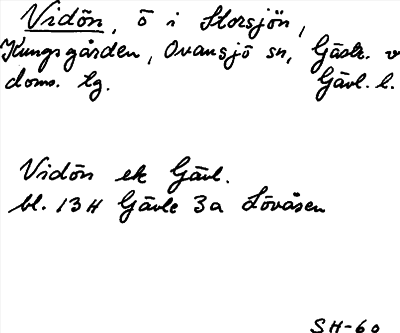 Vidön, ö i Storsjön,
Kungsgården, Ovansjö sn, Gästr. v
doms. lg. Gävl. l.
Vidön ek Gävl.
bl. 13H Gävle 3a Lövåsen
SH-60